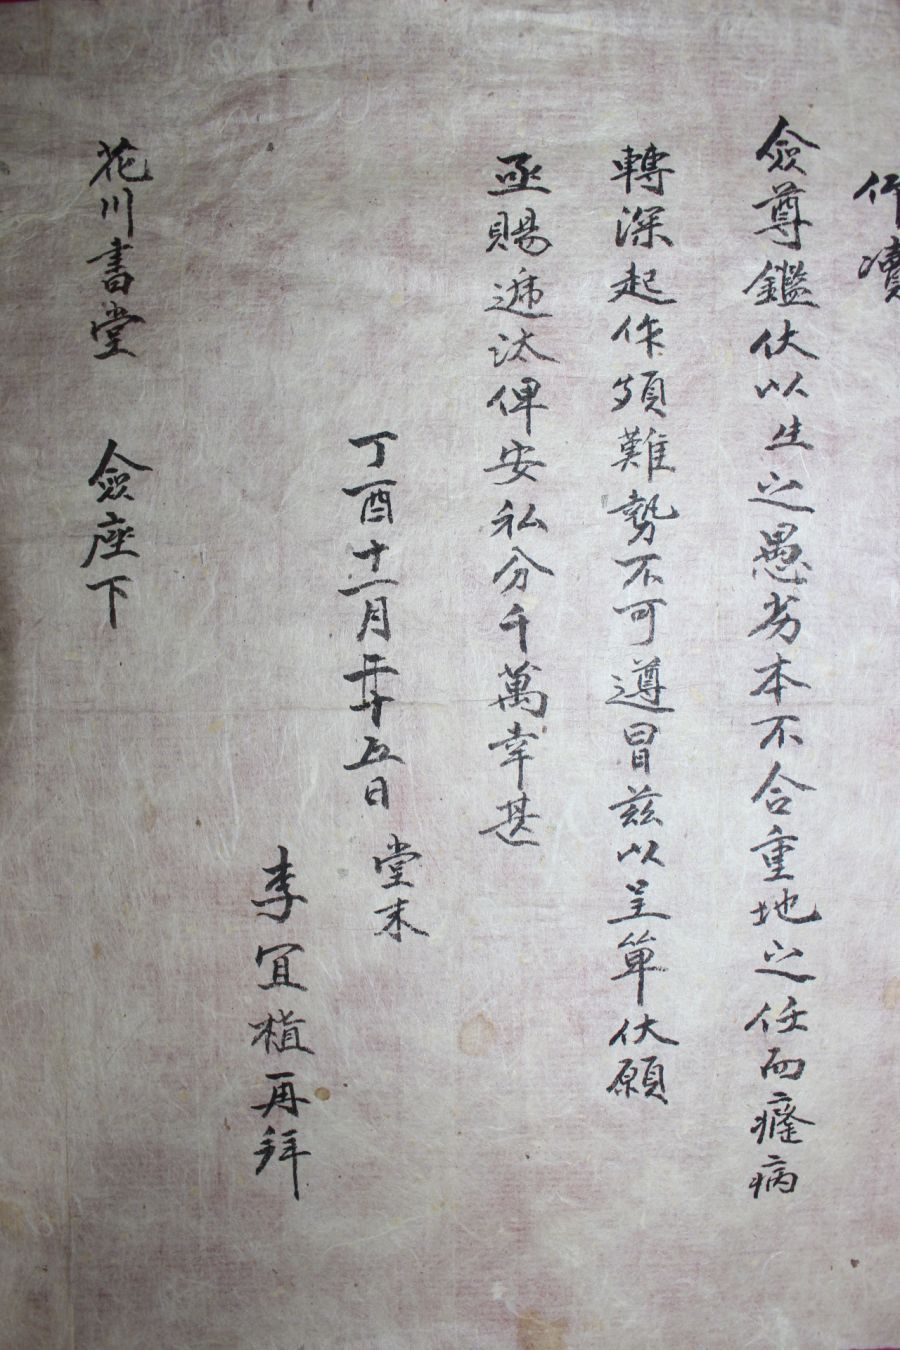 僉尊鑑伏以生之愚劣本不合重地之任而癃病
轉深起作頗難勢不可遵冒玆以呈単伏願
亟賜遞汰俾安私分千萬幸甚
丁酉十一月二十五日 堂末
李宜植再拜
花川書堂 僉座下